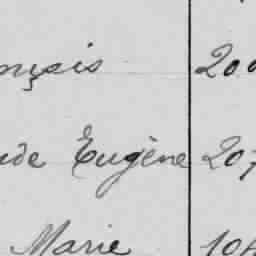 nçois 20
ude Eugène 207
Marie 104